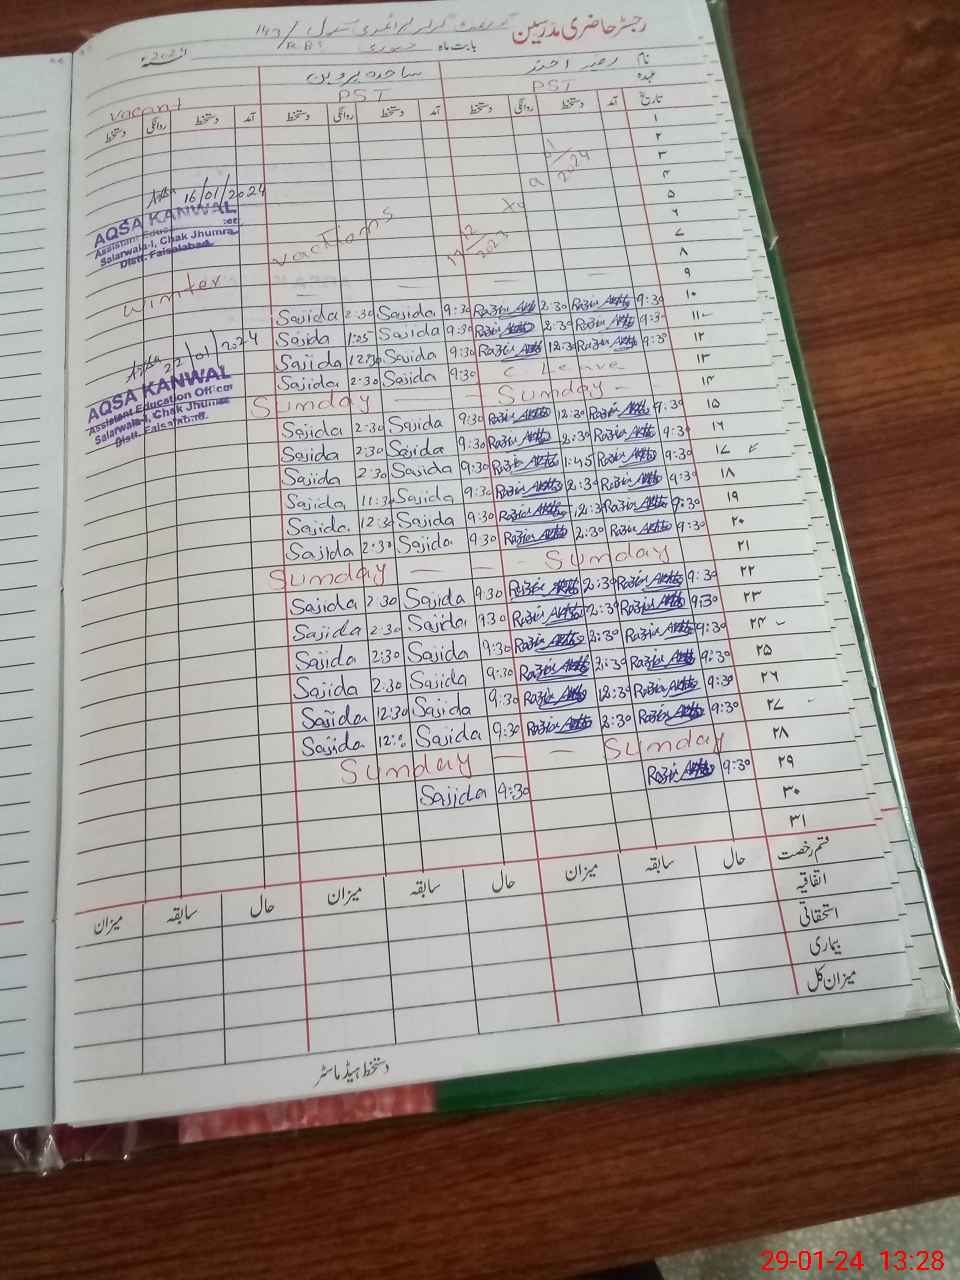 رجسٹر حاضری مدرسین
بابت ماہ جنوری 2024
نام
ساجدہ پروین
عہدہ PST PST vacant
تاریخ آمد دستخط روانگی دستخط آمد دستخط روانگی دستخط آمد دستخط روانگی دستخط
۱
۲
۳
۴
۵
۶
۷
۸
۹
winter vactians
2024
2023
16/01/2024
AQSA KANWAL
Assistant Education Officer
Salarwala-I, Chak Jhumra
Distt. Faisalabad.
۱۰ 9:30 Razia Akhtar 2:30 Razia Akhtar 9:30 Sajida 2:30 Sajida
۱۱ 9:30 Razia Akhtar 2:30 Razia Akhtar 9:30 Sajida 1:25 Sajida
۱۲ 9:30 Razia Akhtar 12:30 Razia Akhtar 9:30 Sajida 12:30 Sajida
۱۳ C. Leave 9:30 Sajida 2:30 Sajida
۱۴ Sunday Sunday
22/01/2024
AQSA KANWAL
Assistant Education Officer
Salarwala-I, Chak Jhumra
Distt. Faisalabad.
۱۵ 9:30 Razia Akhtar 2:30 Razia Akhtar 9:30 Sajida 2:30 Sajida
۱۶ 9:30 Razia Akhtar 2:30 Razia Akhtar 9:30 Sajida 2:30 Sajida
۱۷ 9:30 Razia Akhtar 1:45 Razia Akhtar 9:30 Sajida 2:30 Sajida
۱۸ 9:30 Razia Akhtar 2:30 Razia Akhtar 9:30 Sajida 11:30 Sajida
۱۹ 9:30 Razia Akhtar 12:30 Razia Akhtar 9:30 Sajida 12:30 Sajida
۲۰ 9:30 Razia Akhtar 2:30 Razia Akhtar 9:30 Sajida 2:30 Sajida
۲۱ Sunday Sunday
۲۲ 9:30 Razia Akhtar 2:30 Razia Akhtar 9:30 Sajida 2:30 Sajida
۲۳ 9:30 Razia Akhtar 2:30 Razia Akhtar 9:30 Sajida 2:30 Sajida
۲۴ 9:30 Razia Akhtar 2:30 Razia Akhtar 9:30 Sajida 2:30 Sajida
۲۵ 9:30 Razia Akhtar 2:30 Razia Akhtar 9:30 Sajida 2:30 Sajida
۲۶ 9:30 Razia Akhtar 12:30 Razia Akhtar 9:30 Sajida 12:30 Sajida
۲۷ 9:30 Razia Akhtar 2:30 Razia Akhtar 9:30 Sajida Sajida
۲۸ Sunday Sunday
۲۹ 9:30 Razia Akhtar 9:30 Sajida
۳۰
۳۱
قسم رخصت حال سابقہ میزان حال سابقہ میزان حال سابقہ میزان
اتفاقیہ
استحقاقی
بیماری
میزان کل
دستخط ہیڈ ماسٹر
29-01-24 13:28